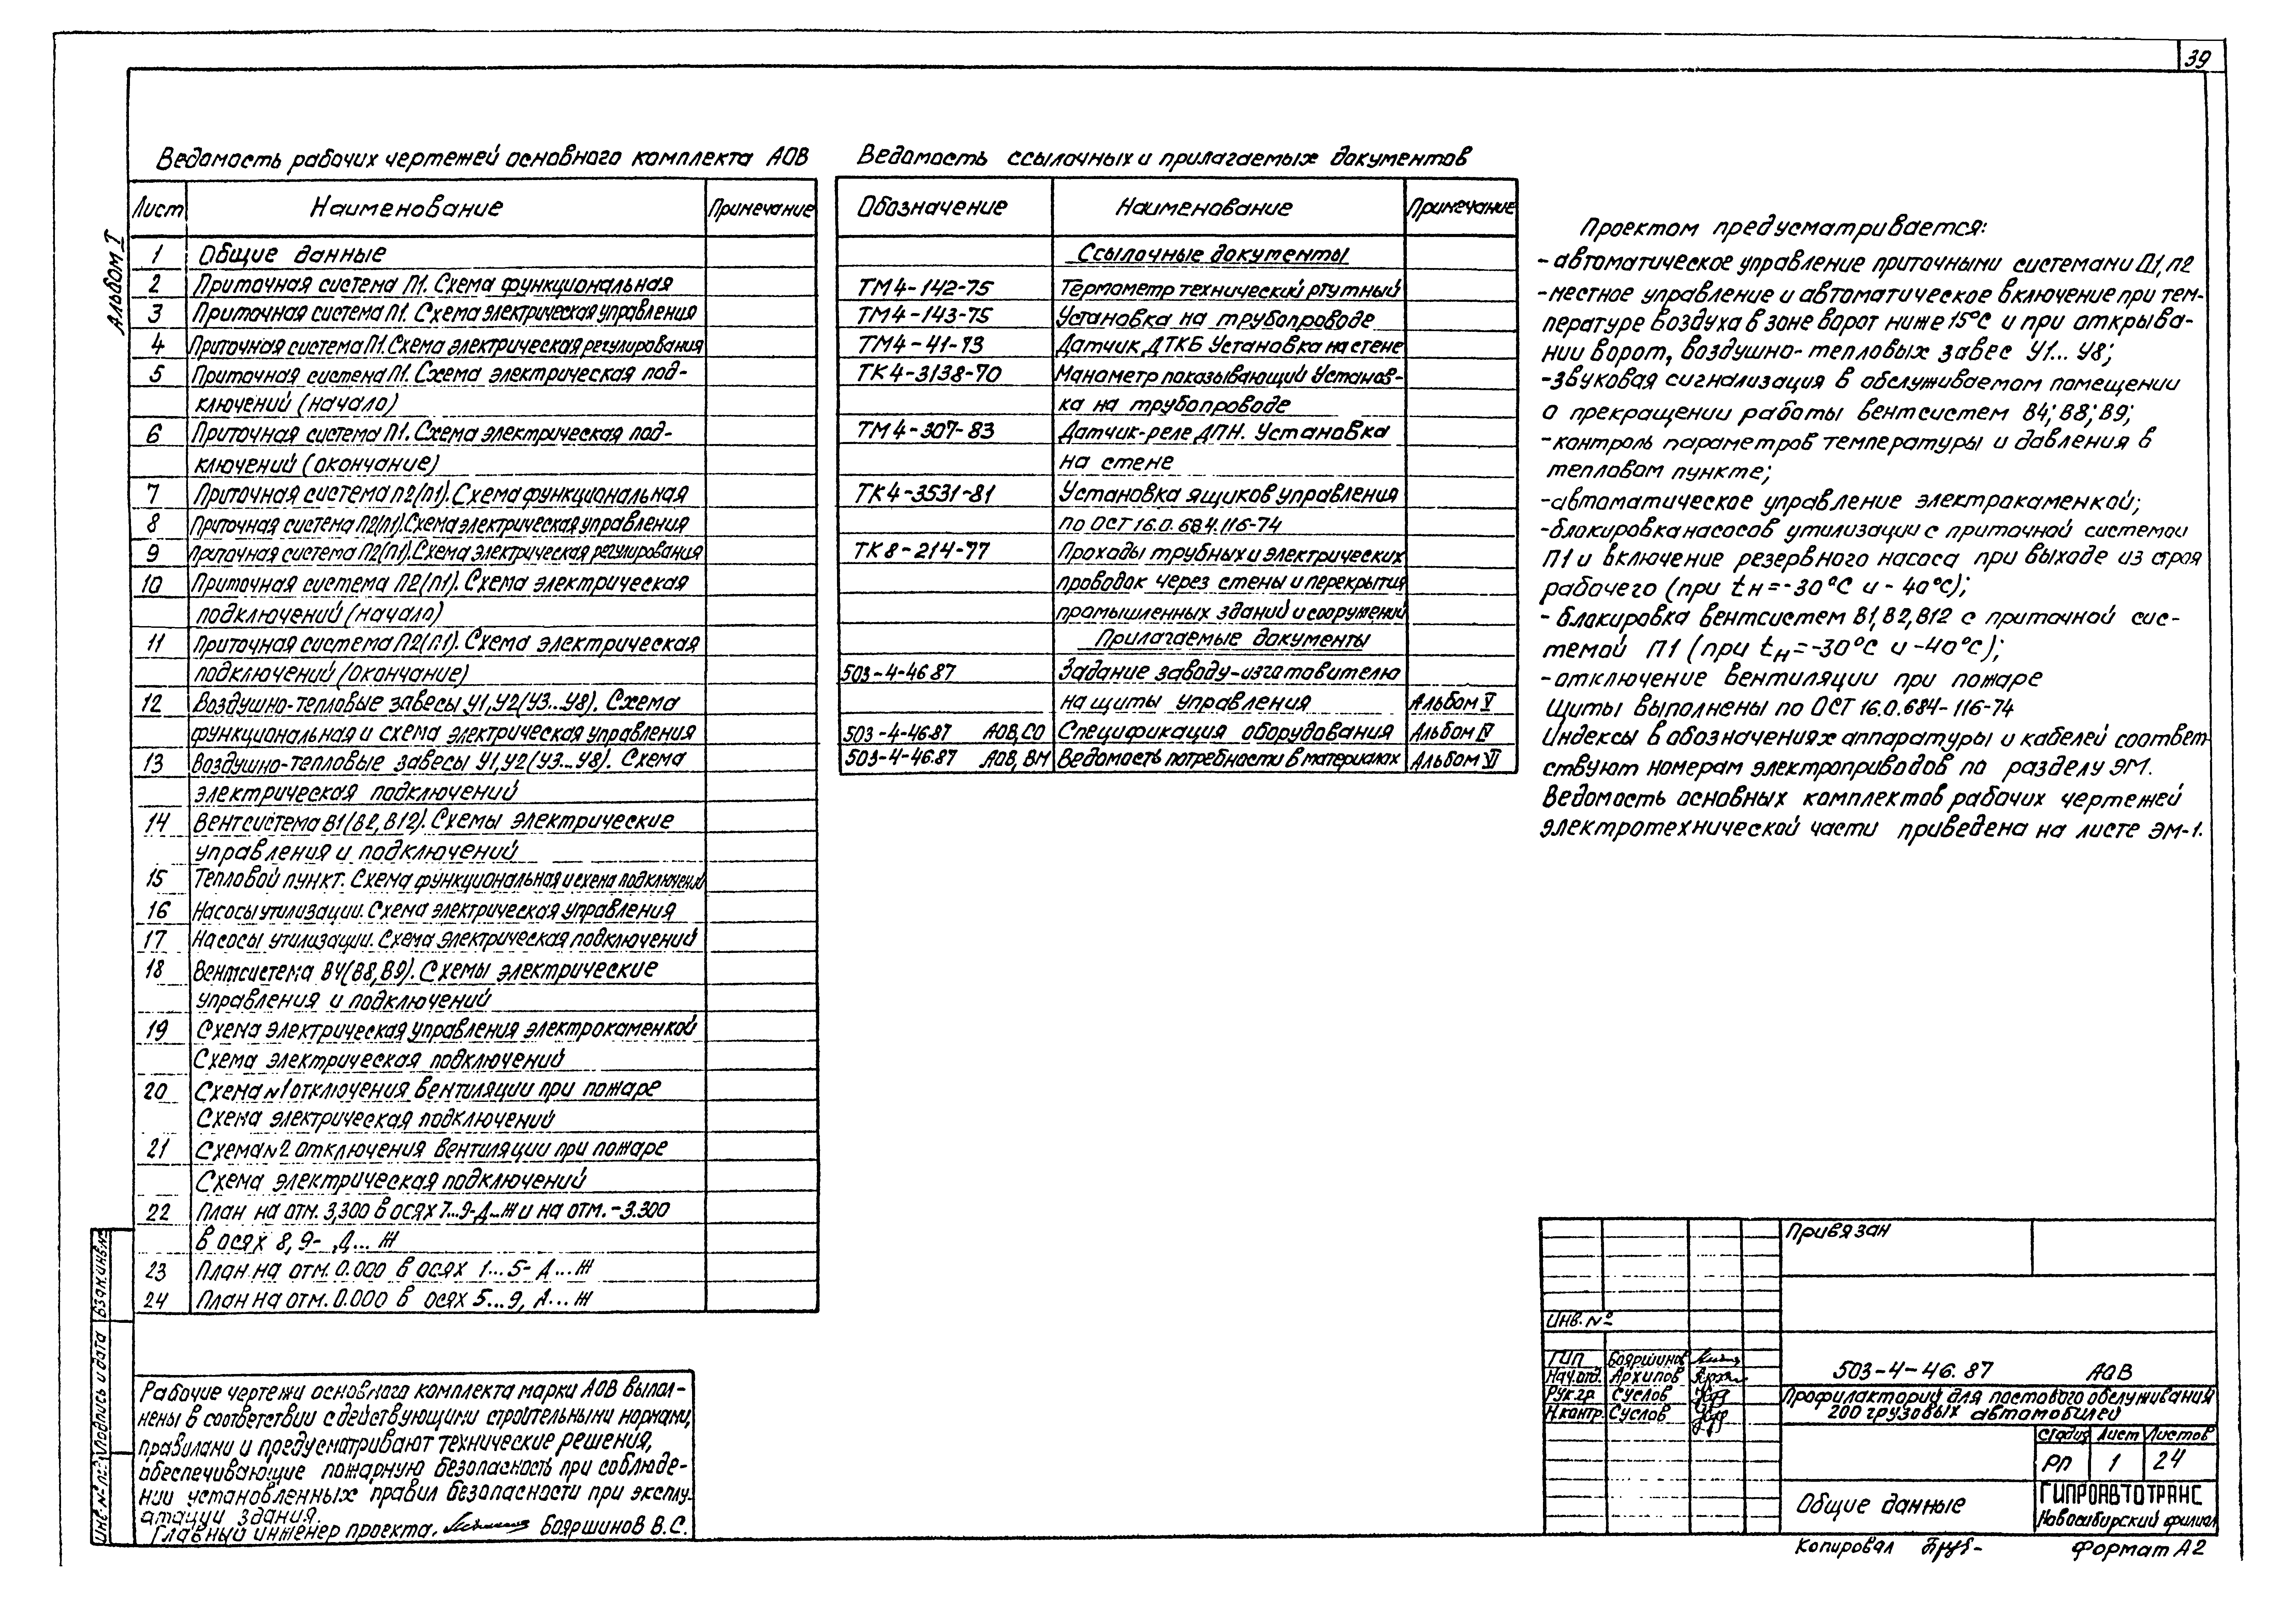 39
Альбом I
Ведомость рабочих чертежей основного комплекта АОВ
Лист Наименование Примечание
1 Общие данные
2 Приточная система П1. Схема функциональная
3 Приточная система П1. Схема электрическая управления
4 Приточная система П1. Схема электрическая регулирования
5 Приточная система П1. Схема электрическая под-
ключений (начало)
6 Приточная система П1. Схема электрическая под-
ключений (окончание)
7 Приточная система П2(П1). Схема функциональная
8 Приточная система П2(П1). Схема электрическая управления
9 Приточная система П2(П1). Схема электрическая регулирования
10 Приточная система П2(П1). Схема электрическая
подключений (начало)
11 Приточная система П2(П1). Схема электрическая
подключений (окончание)
12 Воздушно-тепловые завесы У1, У2(У3...У8). Схема
функциональная и схема электрическая управления
13 Воздушно-тепловые завесы У1, У2(У3...У8). Схема
электрическая подключений
14 Вентсистема В1(В2, В12). Схемы электрические
управления и подключений
15 Тепловой пункт. Схема функциональная и схема подключений
16 Насосы утилизации. Схема электрическая управления
17 Насосы утилизации. Схема электрическая подключений
18 Вентсистема В4(В8, В9). Схемы электрические
управления и подключений
19 Схема электрическая управления электрокаменкой
Схема электрическая подключений
20 Схема №1 отключения вентиляции при пожаре
Схема электрическая подключений
21 Схема №2 отключения вентиляции при пожаре
Схема электрическая подключений
22 План на отм. 3,300 в осях 7...9-Д...Ж и на отм. -3.300
в осях 8, 9- , Д... Ж
23 План на отм. 0.000 в осях 1...5- А...Ж
24 План на отм. 0.000 в осях 5...9, А...Ж
Ведомость ссылочных и прилагаемых документов
Обозначение Наименование Примечание
Ссылочные документы
ТМ4-142-75 Термометр технический ртутный
ТМ4-143-75 Установка на трубопроводе
ТМ4-41-73 Датчик ДТКБ Установка на стене
ТК4-3138-70 Манометр показывающий Установ-
ка на трубопроводе
ТМ4-307-83 Датчик-реле ДПН. Установка
на стене
ТК4-3531-81 Установка ящиков управления
по ОСТ 16.0.684.116-74
ТК8-214-77 Проходы трубных и электрических
проводок через стены и перекрытия
промышленных зданий и сооружений
Прилагаемые документы
503-4-46.87 Задание заводу-изготовителю
на щиты управления Альбом V
503-4-46.87 АОВ, СО Спецификация оборудования Альбом IV
503-4-46.87 АОВ, ВМ Ведомость потребности в материалах Альбом VI
Проектом предусматривается:
- автоматическое управление приточными системами П1, П2
- местное управление и автоматическое включение при тем-
пературе воздуха в зоне ворот ниже 15°С и при открыва-
нии ворот, воздушно-тепловых завес У1... У8;
- звуковая сигнализация в обслуживаемом помещении
о прекращении работы вентсистем В4; В8; В9;
- контроль параметров температуры и давления в
тепловом пункте;
- автоматическое управление электрокаменкой;
- блокировка насосов утилизации с приточной системой
П1 и включение резервного насоса при выходе из строя
рабочего (при tн=-30°С и -40°С);
- блокировка вентсистем В1, В2, В12 с приточной сис-
темой П1 (при tн=-30°С и -40°С);
- отключение вентиляции при пожаре
Щиты выполнены по ОСТ 16.0.684-116-74
Индексы в обозначениях аппаратуры и кабелей соответ-
ствуют номерам электроприводов по разделу ЭМ.
Ведомость основных комплектов рабочих чертежей
электротехнической части приведена на листе ЭМ-1.
Рабочие чертежи основного комплекта марки АОВ выпол-
нены в соответствии с действующими строительными нормами,
правилами и предусматривают технические решения,
обеспечивающие пожарную безопасность при соблюде-
нии установленных правил безопасности при эксплу-
атации здания.
Главный инженер проекта. Бояршинов В.С.
Взам.инв.№
Подпись и дата
Инв.№ подл.
Привязан
Инв. №
ГИП Бояршинов
Нач.отд. Архипов
Рук.гр. Суслов
Н.контр. Суслов
503-4-46.87 АОВ
Профилакторий для постового обслуживания
200 грузовых автомобилей
Стадия Лист Листов
РП 1 24
Общие данные
ГИПРОАВТОТРАНС
Новосибирский филиал
Копировал Формат А2